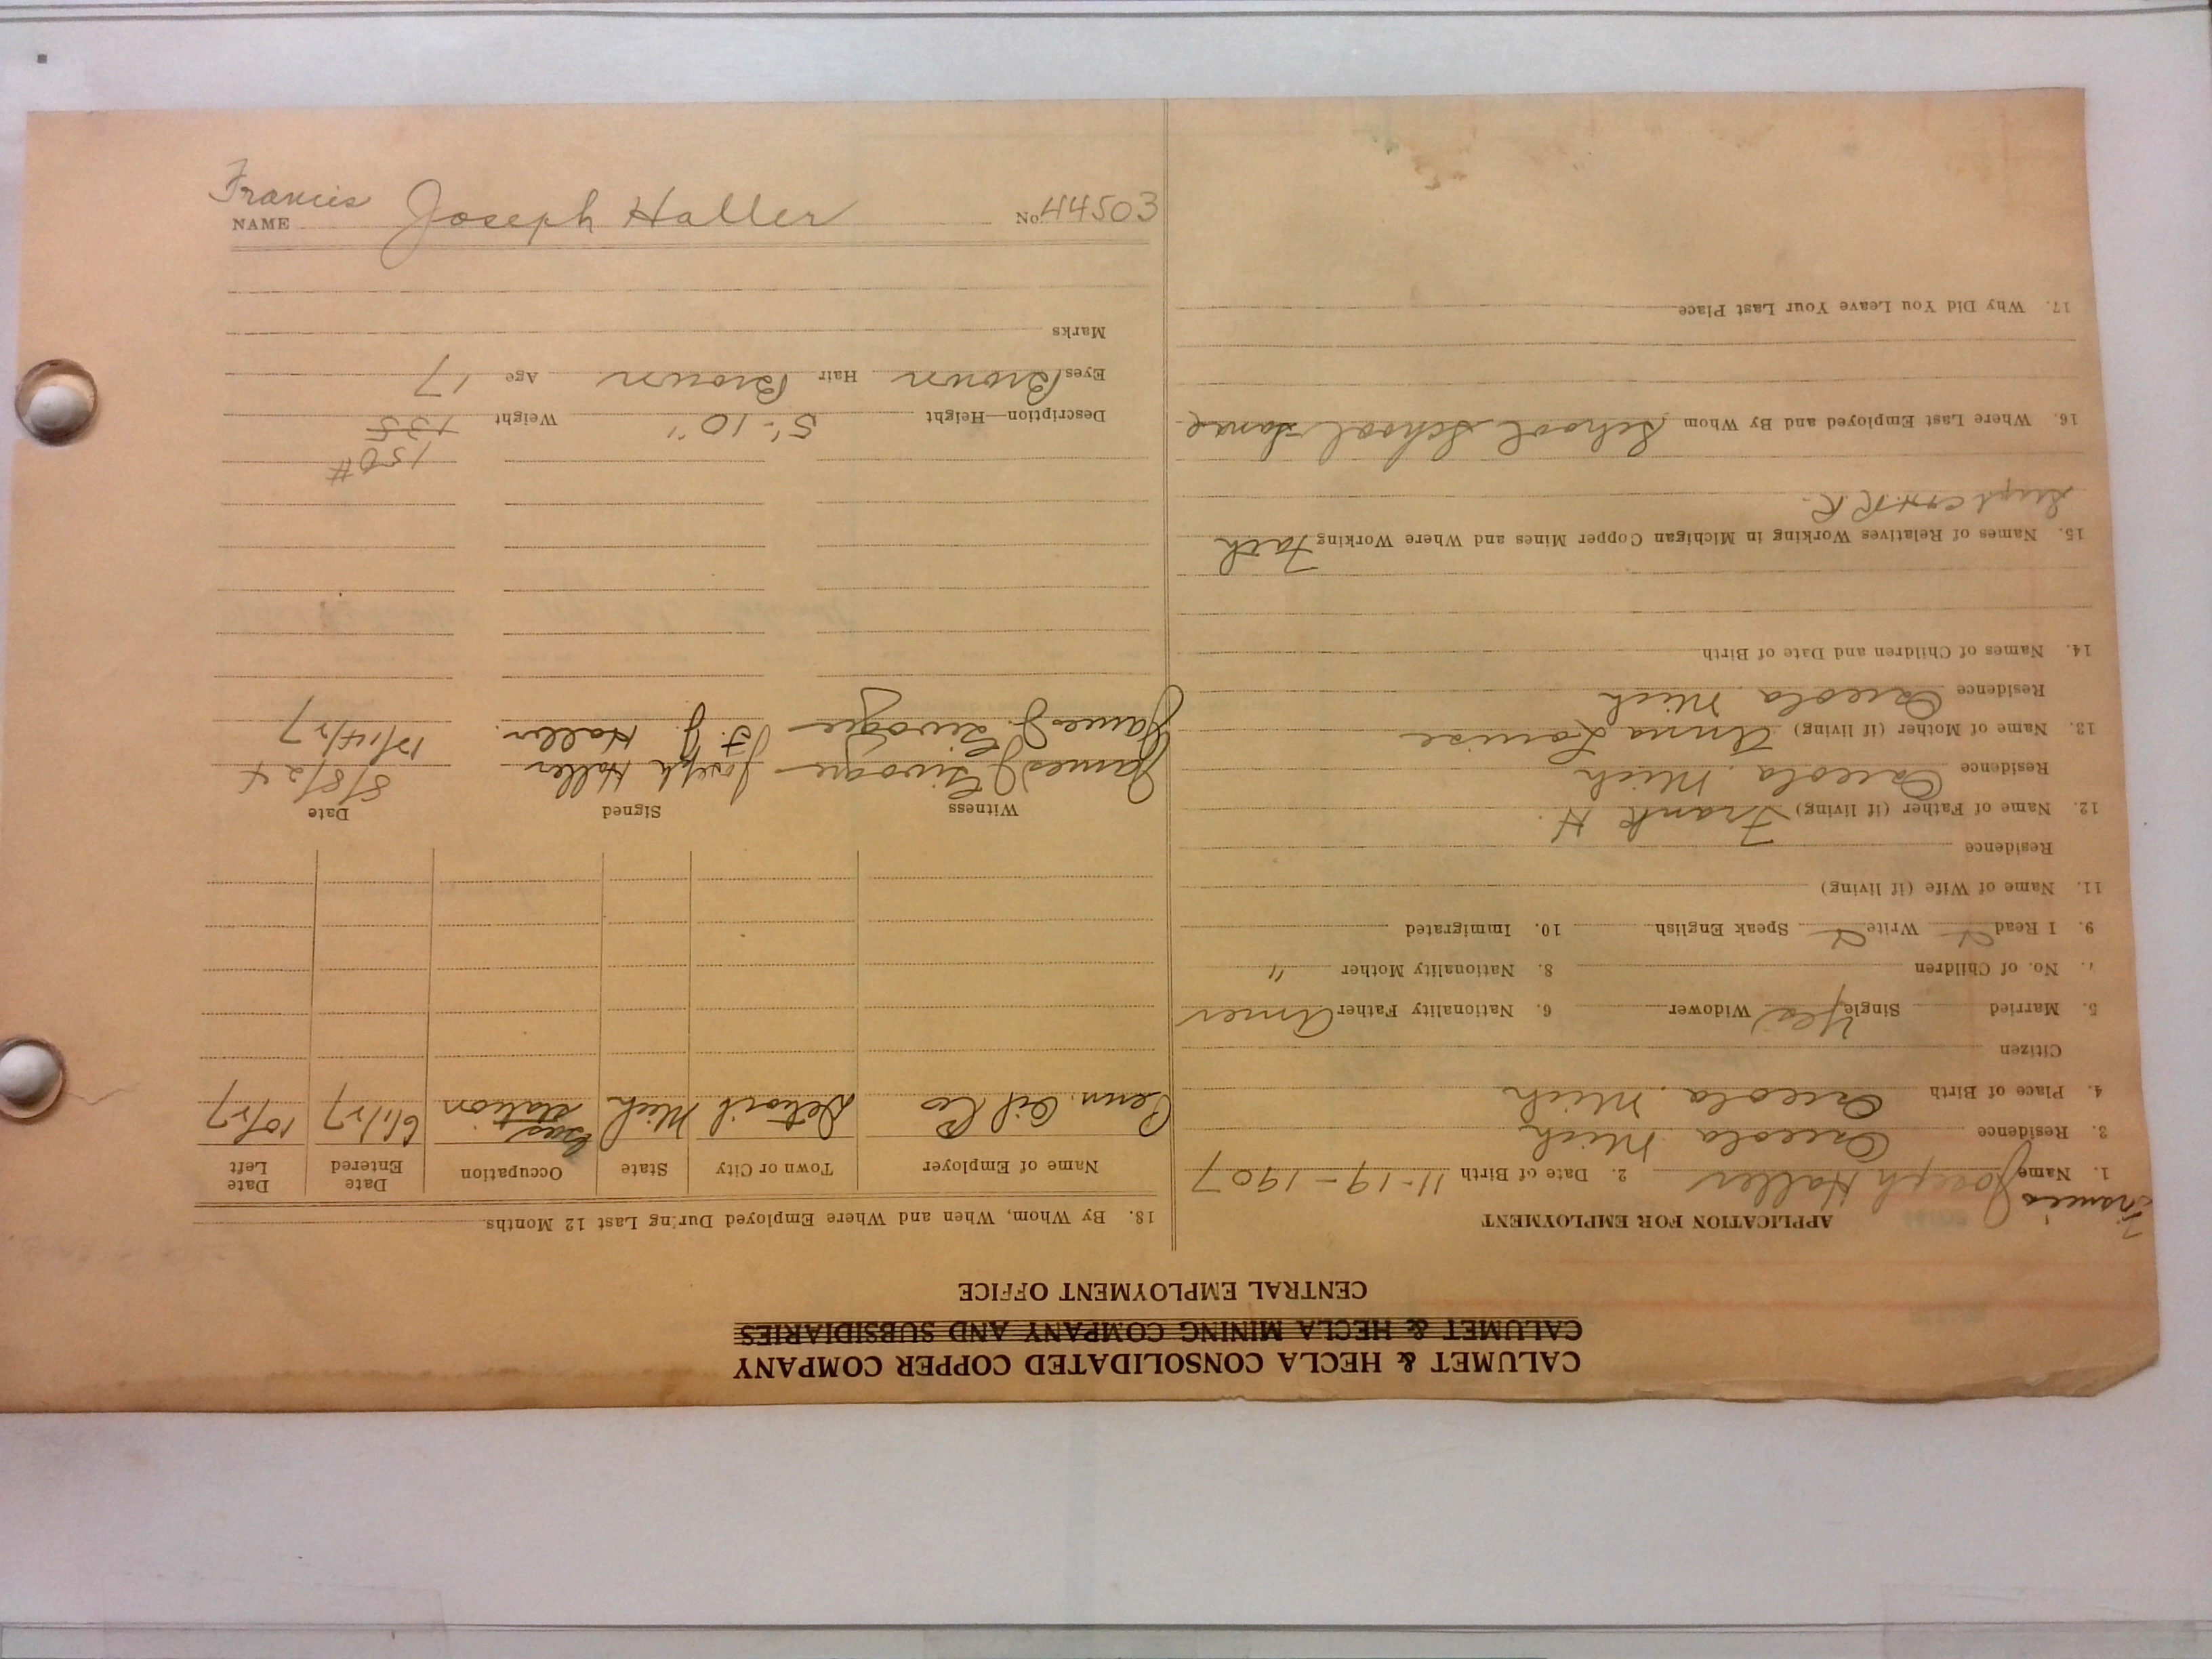 CALUMET & HECLA CONSOLIDATED COPPER COMPANY
CALUMET & HECLA MINING COMPANY AND SUBSIDIARIES
CENTRAL EMPLOYMENT OFFICE
APPLICATION FOR EMPLOYMENT
Francis
1. Name Joseph Haller 2. Date of Birth 11-19-1907
3. Residence Osceola Mich
4. Place of Birth Osceola Mich
Citizen
5. Married Single Yes Widower 6. Nationality Father Amer
7. No. of Children 8. Nationality Mother "
9. I Read Write Speak English 10. Immigrated
11. Name of Wife (if living)
Residence
12. Name of Father (if living) Frank H.
Residence Osceola Mich
13. Name of Mother (if living) Anna Louise
Residence Osceola Mich
14. Names of Children and Date of Birth
15. Names of Relatives Working in Michigan Copper Mines and Where Working Fath
Supt C+H.R.R.
16. Where Last Employed and By Whom School School
17. Why Did You Leave Your Last Place
18. By Whom, When and Where Employed During Last 12 Months
Name of Employer Town or City State Occupation Date Entered Date Left
Penn. Oil Co Detroit Mich Mich Gas Station 6/1/27 10/27
Witness Signed Date
James J. Joseph Haller 8/8/24
James J. F. J. Haller. 12/14/27
150#
Description—Height 5'-10" Weight 135
Eyes Brown Hair Brown Age 17
Marks
Francis
NAME Joseph Haller No. 44503